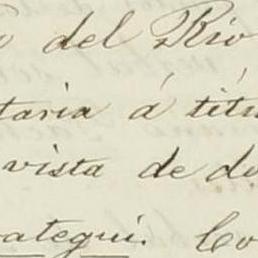 del Río
taria á títu
vista de do
ategui. Co